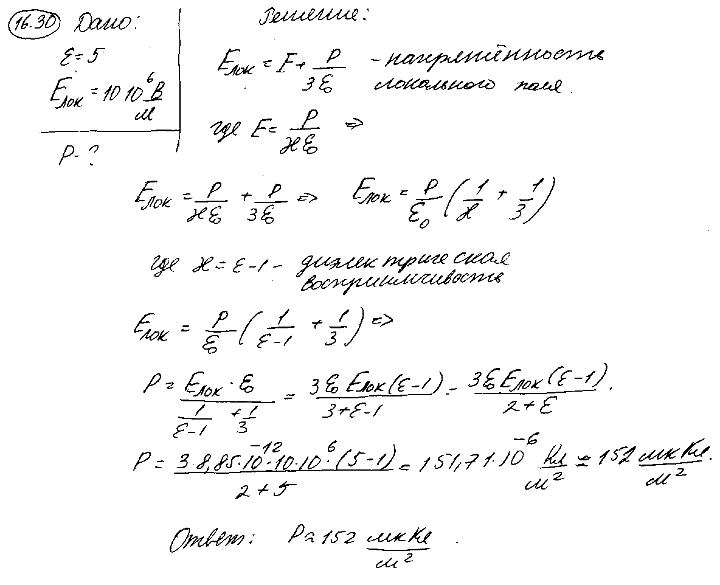 16.30 Дано:
ε=5
Eлок = 10·10^6 В/м
P-?
Решение:
Eлок = E + P/3ε₀ - напряжённость локального поля.
где E = P/ϰε₀ ⇒
Eлок = P/ϰε₀ + P/3ε₀ ⇒ Eлок = P/ε₀ (1/ϰ + 1/3)
где ϰ = ε-1 - диэлектрическая
восприимчивость
Eлок = P/ε₀ (1/(ε-1) + 1/3) ⇒
P = Eлок·ε₀/(1/(ε-1) + 1/3) = 3ε₀Eлок(ε-1)/(3+ε-1) = 3ε₀Eлок(ε-1)/(2+ε).
P = 3·8,85·10^-12·10·10^6·(5-1)/(2+5) = 151,71·10^-6 Кл/м² ≈ 152 мкКл/м².
Ответ: P≈152 мкКл/м².